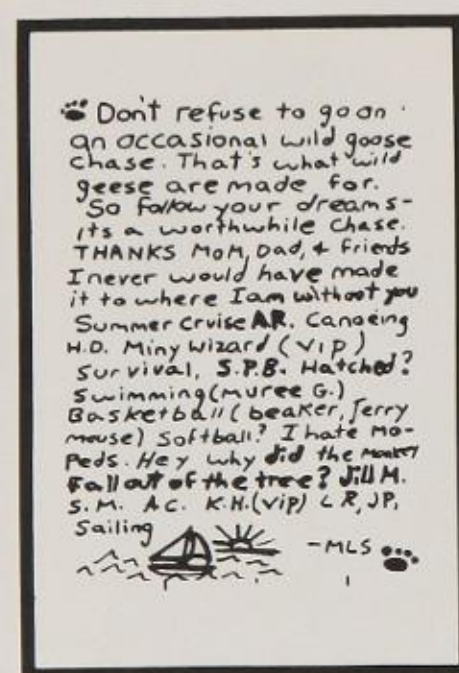 Don't refuse to go on
an occasional wild goose
chase. That's what wild
geese are made for.
So follow your dreams-
its a worthwhile chase.
THANKS MOM, Dad, & friends
I never would have made
it to where I am without you
Summer Cruise AR. Canoeing
H.D. Miny Wizard (VIP)
Survival, S.P.B. Hatched?
Swimming (muree G.)
Basketball (beaker, Jerry
mouse) Softball? I hate Mo-
Peds. Hey why did the monkey
Fall out of the tree? Jill M.
S.M. A.C. K.H. (vip) L R, JP,
Sailing
-MLS